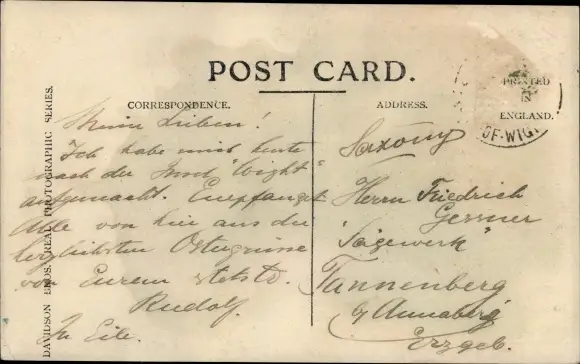 POST CARD.
PRINTED
IN
ENGLAND.
OF-WIG
DAVIDSON BROS. REAL PHOTOGRAPHIC SERIES.
CORRESPONDENCE.
Meine Lieben!
Ich habe mich heute
nach der Insel "Wight"
aufgemacht. Empfanget
Alle von hier aus die
herzlichsten Ostergrüsse
von Eurem
Rudolf.
In Eile.
ADDRESS.
Saxony
Herrn Friedrich
Gessner
"Sägewerk"
Tannenberg
b/ Annaberg
Erzgeb.